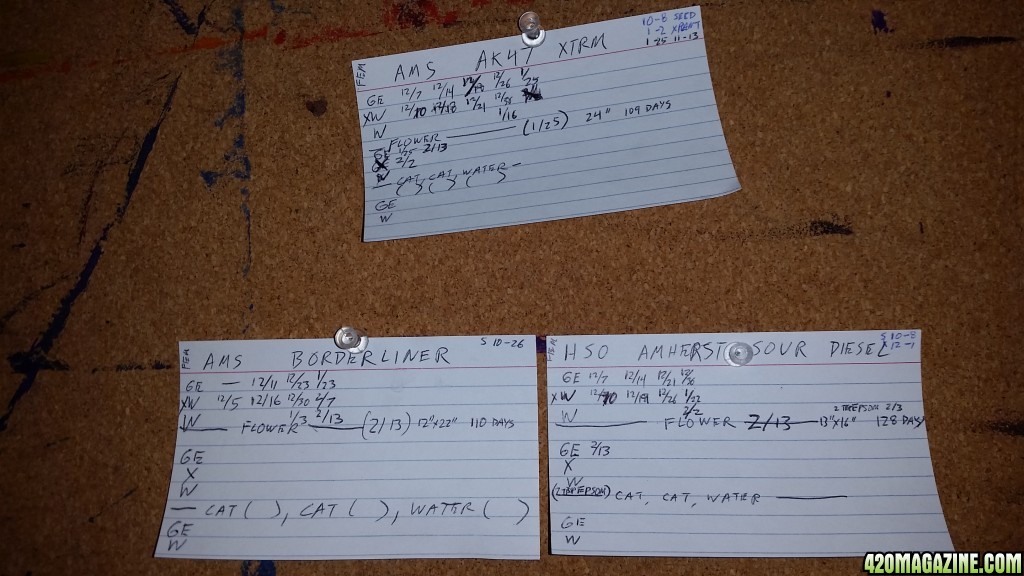 FEM
AMS AK47 XTRM
10-8 SEED
1-2 XPLANT
1-25 11-13
GE 12/7 12/14 12/19 12/26 1/25
XW 12/10 12/18 12/21 12/28
W 1/16
— FLOWER ——— (1/25) 24" 109 DAYS
GE 1/25 2/13
X 2/2
W
— CAT, CAT, WATER —
( ) ( ) ( )
GE
W
FEM
AMS BORDERLINER S 10-26
GE — 12/11 12/23 1/23
XW 12/5 12/16 12/30 2/7
W 1/3 2/13
—— FLOWER ——— (2/13) 12"x22" 110 DAYS
GE
X
W
— CAT ( ), CAT ( ), WATER ( )
GE
W
FEM
HSO AMHERST SOUR DIESEL
S 10-8
12-1
GE 12/7 12/14 12/21 12/30
XW 12/10 12/19 12/26 1/22
W 2/2 2 TBRFPSOM 2/3
——— FLOWER 2/13 — 13"x16" 128 DAYS
GE 2/13
X
W
CAT, CAT, WATER ———
GE
W
420MAGAZINE.COM